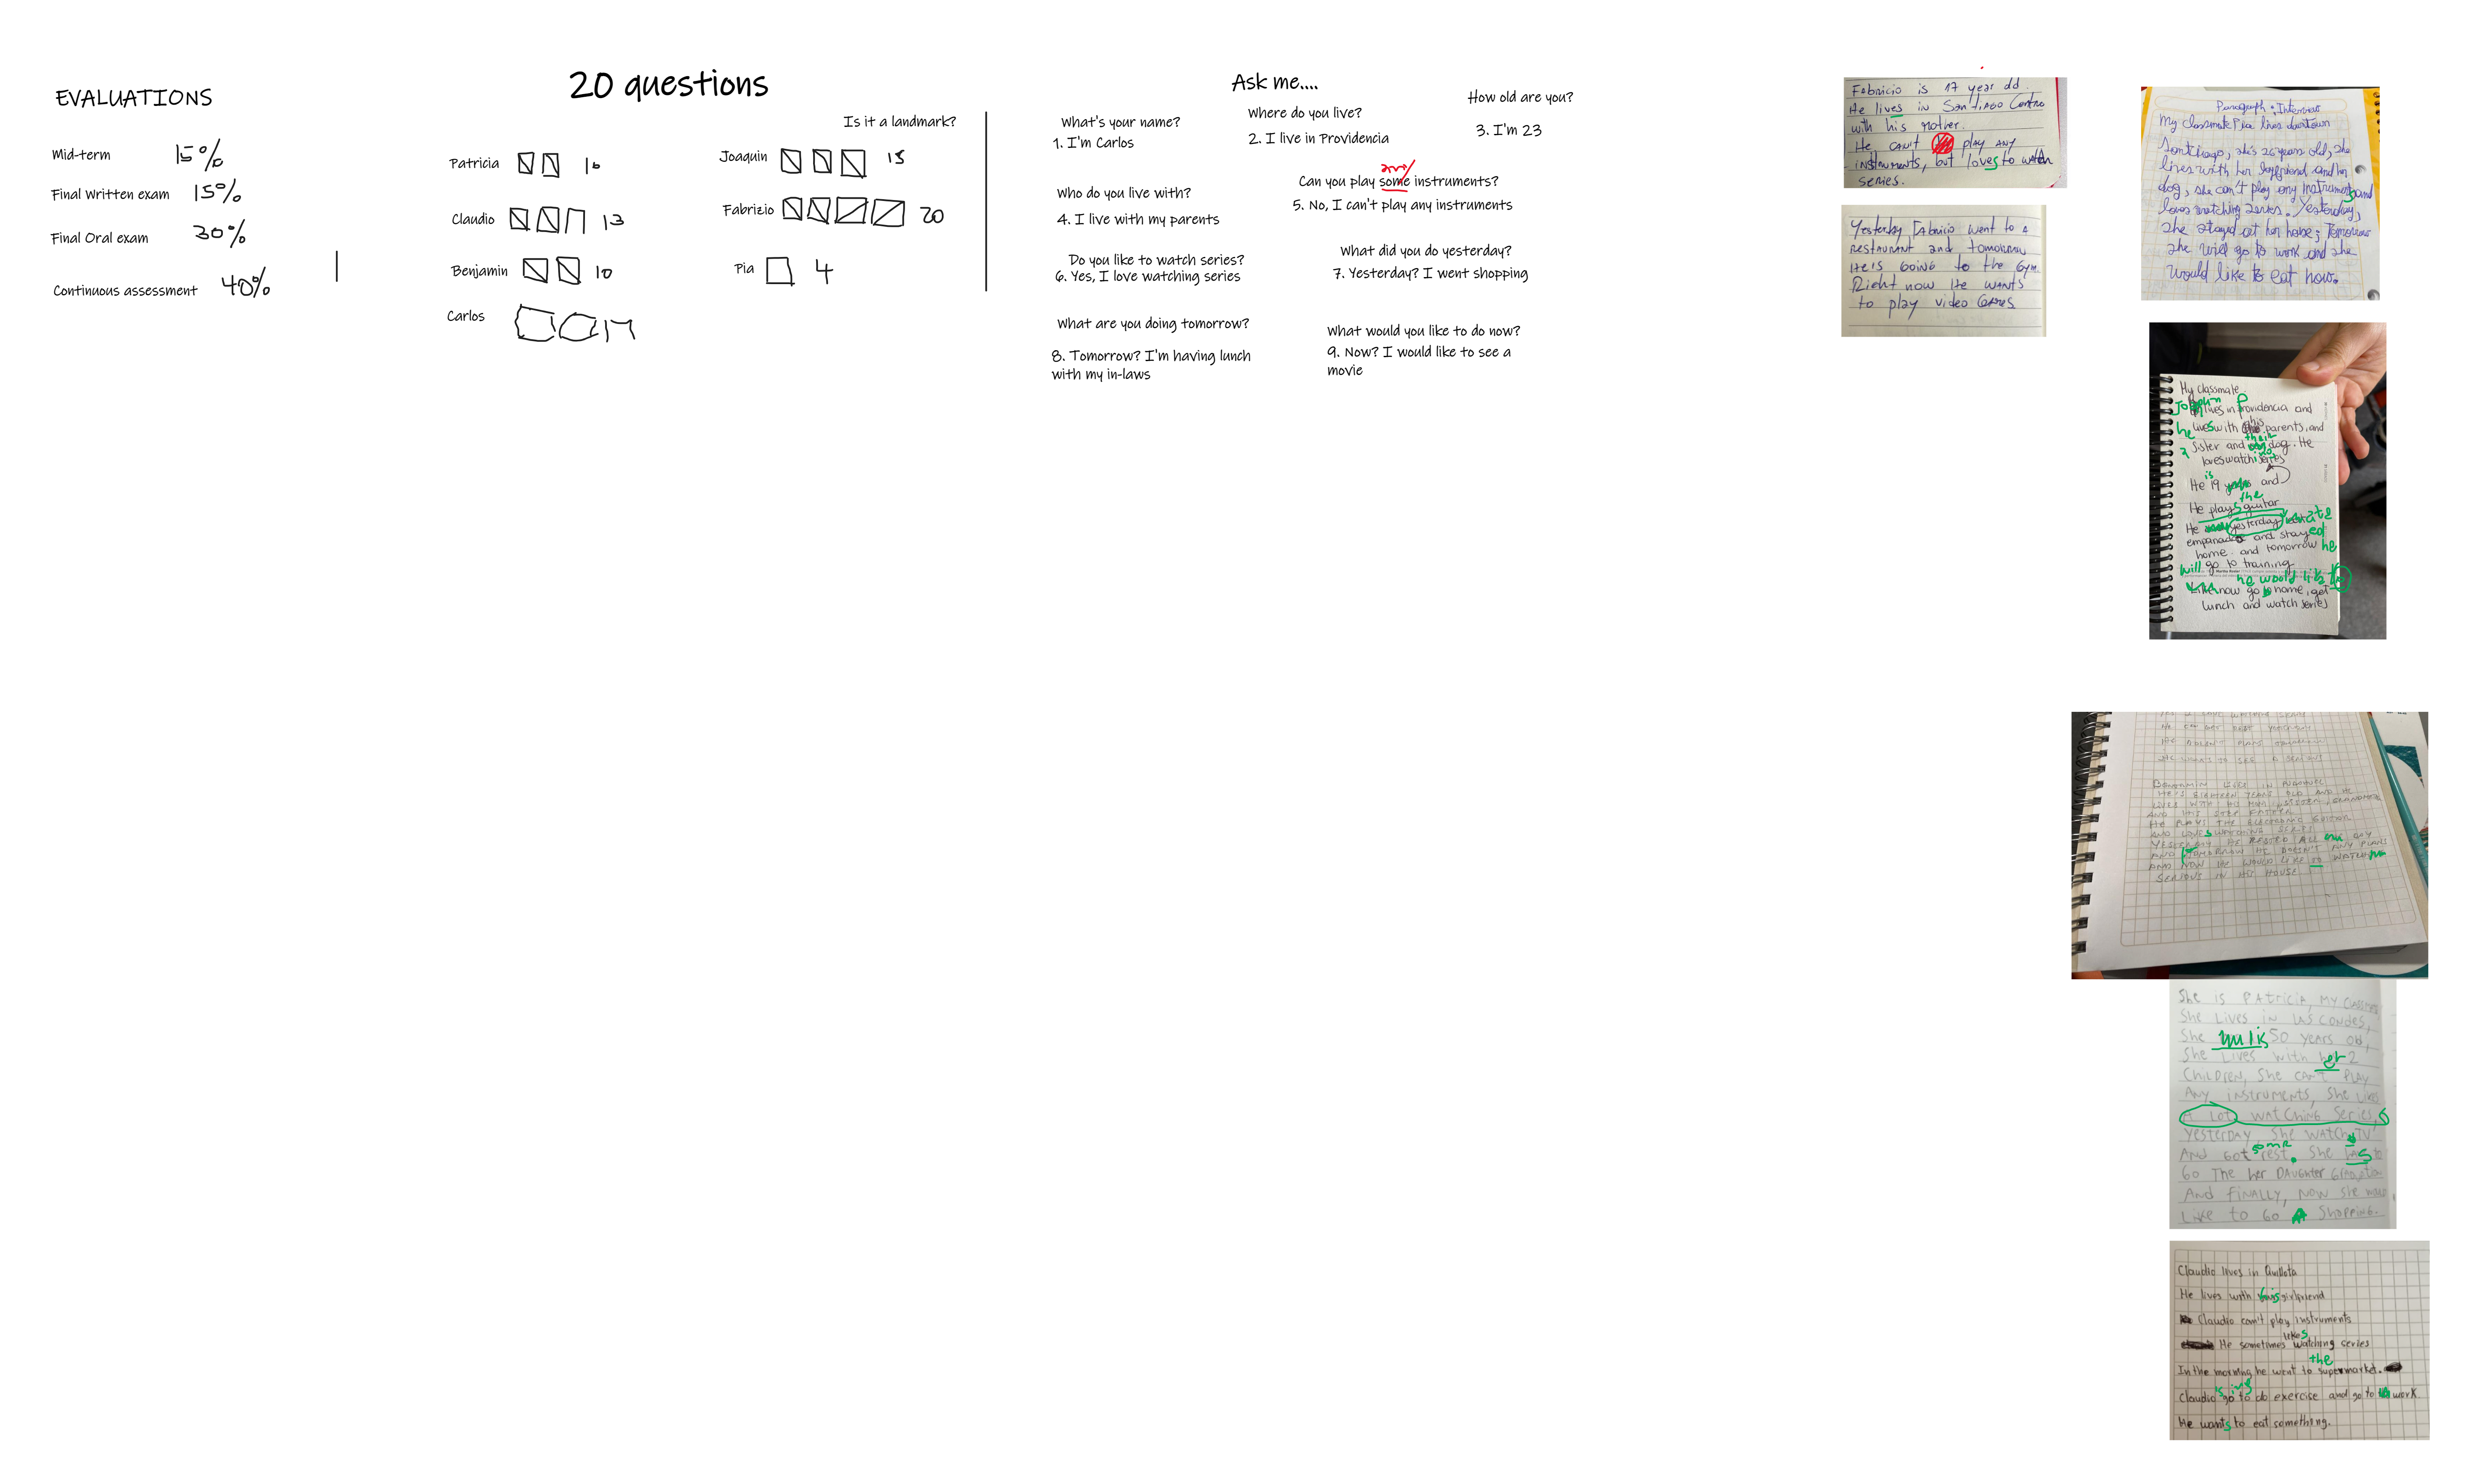 EVALUATIONS
Mid-term 15%
Final Written exam 15%
Final Oral exam 30%
Continuous assessment 40%
20 questions
Is it a landmark?
Patricia 10
Claudio 13
Benjamin 10
Carlos 17
Joaquin 15
Fabrizio 20
Pia 4
Ask me....
What's your name?
1. I'm Carlos
Where do you live?
2. I live in Providencia
How old are you?
3. I'm 23
Who do you live with?
4. I live with my parents
any
Can you play some instruments?
5. No, I can't play any instruments
Do you like to watch series?
6. Yes, I love watching series
What did you do yesterday?
7. Yesterday? I went shopping
What are you doing tomorrow?
8. Tomorrow? I'm having lunch
with my in-laws
What would you like to do now?
9. Now? I would like to see a
movie
Fabricio is 17 year old.
He lives in Santiago Centro
with his mother.
He can't play any
instruments, but loves to watch
series.
Yesterday Fabricio went to a
restaurant and tomorrow
He's going to the gym.
Right now He wants
to play video Games
Paragraph: Interview
My classmate Pia lives downtown
Santiago, she's 26 years old, she
lives with her boyfriend and her
dog, she can't play any instruments and
loves watching series. Yesterday,
she stayed at her house; Tomorrow
she will go to work and she
would like to eat now.
My classmate
Joaquin lives in Providencia and
he lives with his parents, and
sister and their dog. He
loves watching series
He is 19 and
He plays the guitar
He yesterday ate
empanadas and stayed
home. and tomorrow he
will go to training
he would like to
now go home, get
lunch and watch series
Benjamin
He's eighteen years old and he
lives with his mom, sister, grandmother
and his step father
He plays the electronic guitar
and loves watching series
Yesterday he rested all day
and tomorrow he doesn't any plans
and now he would like to watch
serious in his house
She is Patricia, my classmate
She lives in Las Condes,
She is 50 years old,
She lives with her 2
children, she can't play
any instruments, she likes
a lot watching series,
yesterday she watch TV
and got some rest. She has to
go the her daughter
And finally, now she would
like to go shopping.
Claudio lives in Quillota
He lives with his girlfriend
Claudio can't play instruments
likes
He sometimes watching series
the
In the morning he went to supermarket.
is ing
Claudio go to do exercise and go to work
He wants to eat something.